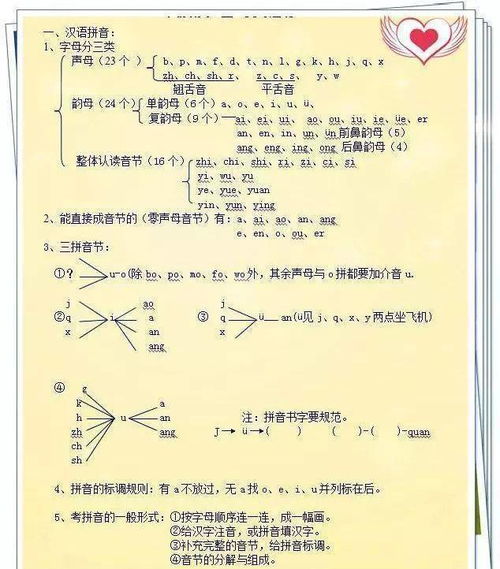 一、汉语拼音：
1、字母分三类
声母(23个) b、p、m、f、d、t、n、l、g、k、h、j、q、x
zh、ch、sh、r、 z、c、s、 y、w
翘舌音 平舌音
韵母(24个) 单韵母(6个) a、o、e、i、u、ü、
复韵母(9个) ai、ei、ui、 ao、ou、iu、ie、üe、er
an、en、in、un、ün 前鼻韵母(5)
ang、eng、ing、ong 后鼻韵母(4)
整体认读音节(16个) zhi、chi、shi、ri、zi、ci、si
yi、wu、yu
ye、yue、yuan
yin、yun、ying
2、能直接成音节的(零声母音节)有: a、ai、ao、an、ang
e、en、o、ou、er
3、三拼音节:
①? u-o(除bo、po、mo、fo、wo外，其余声母与o拼都要加介音u.
j ao j
②q i a ③ q ü an(ü见j、q、x、y两点坐飞机)
x an x
ang
④ g
k a
h u an 注: 拼音书字要规范。
zh ang J→ü→( ) ( )-( )-quan
ch
sh
4、拼音的标调规则: 有a不放过, 无a找o、e、i、u并列标在后。
5、考拼音的一般形式: ①按字母顺序连一连, 成一幅画。
②给汉字注音, 或拼音填汉字。
③补充完整的音节, 给拼音标调。
④音节的分解与组成。